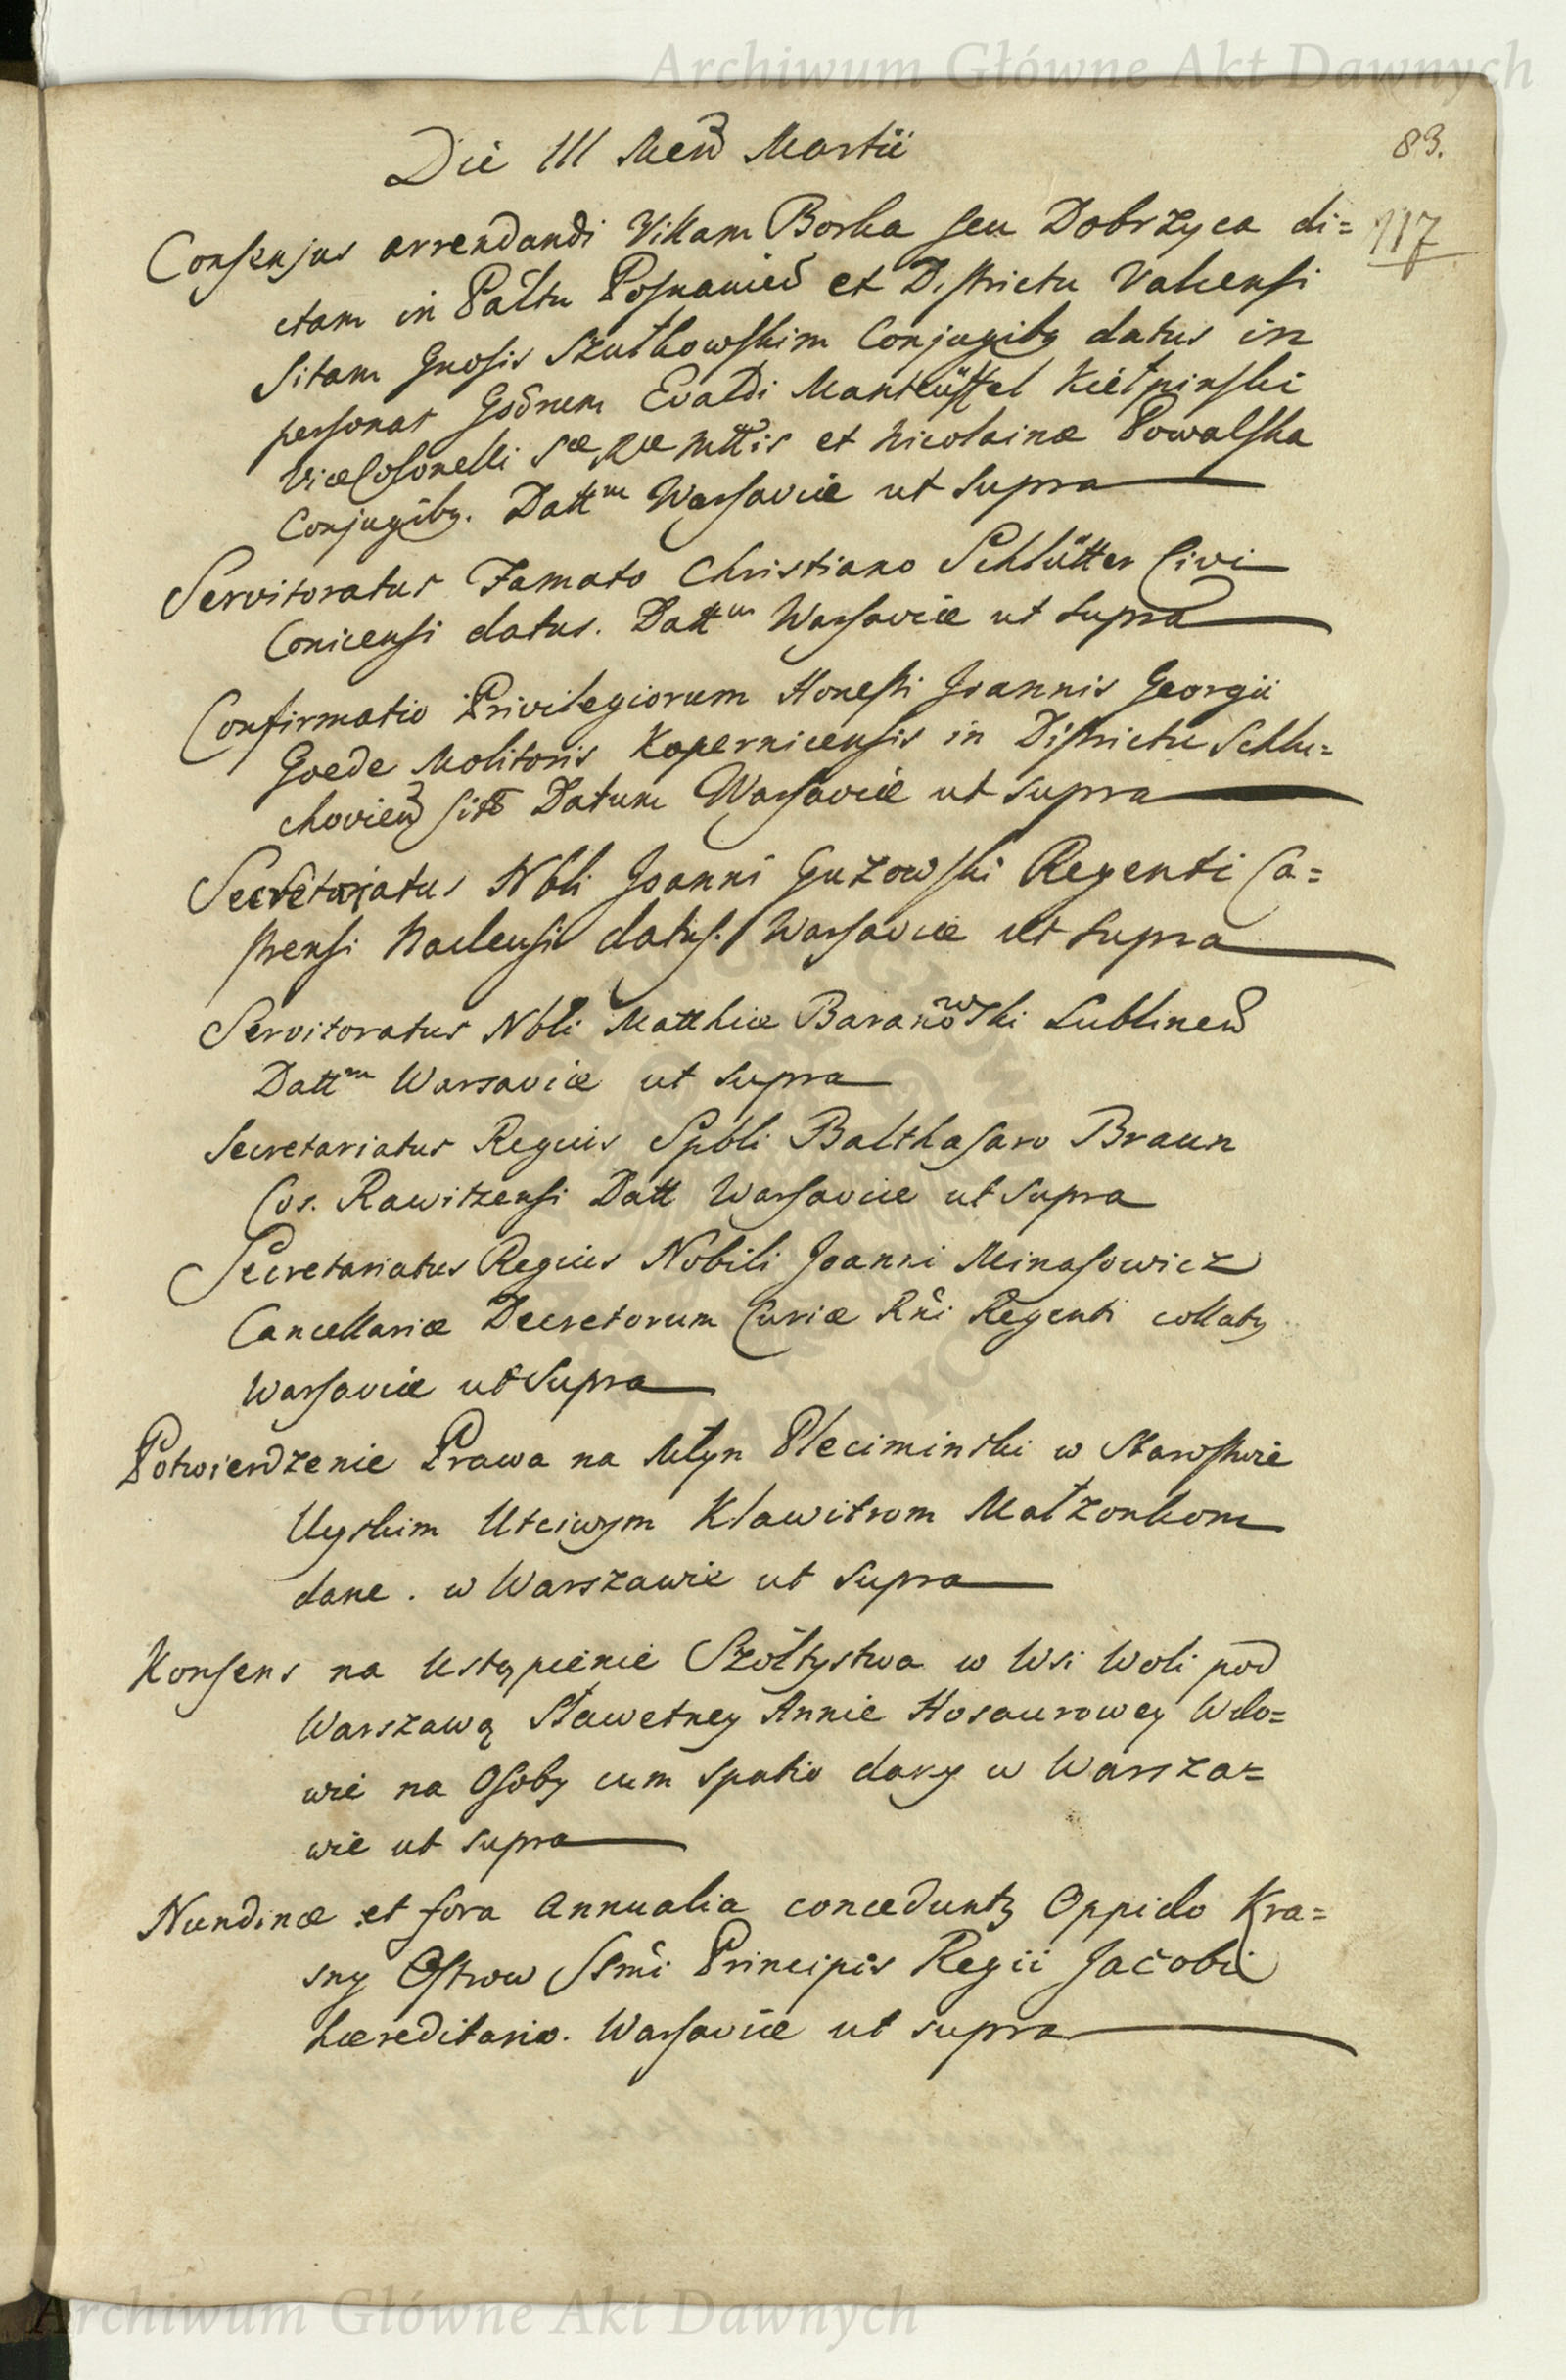 Archiwum Główne Akt Dawnych
83.
Die III Mens Martii
117
Consensus arrendandi Villam Borka seu Dobrzyca di=
ctam in Pältu Posnanien et Districtu Valcensi
Sitam Gnosis Szutkowskim Conjugibg datus in
personas Gdrum Evaldi Manteüffel Kiełpinski
ViceColonelli Sæ Ræ Mttis et Nicolainæ Powalska
Conjugibg. Datt^m Warsaviæ ut supra
Servitoratus Famato Christiano Schlütter Civi
Conicensi datus. Datt^m Warsaviæ ut supra
Confirmatio Privilegiorum Honesti Joannis Georgii
Goede Molitoris Kopernicensis in Districtu Schlu=
chovien siti Datum Warsaviæ ut supra
Secretariatus Nbli Joanni Guzowski Regenti Ca=
strensi Naclensi datus. Warsaviæ ut supra
Servitoratus Nbli Matthiæ Baranowski Lublinen
Datt^m Warsaviæ ut supra
Secretariatus Regius Spbli Balthasaro Braun
Cos. Rawitzensi Datt Warsaviæ ut supra
Secretariatus Regius Nobili Joanni Minasowicz
Cancellariæ Decretorum Curiæ Rni Regenti collatg
Warsaviæ ut supra
Potwierdzenie Prawa na Młyn Pleciminski w Starostwie
Uyskim Utciwym Klawitrom Małzonkom
dane. w Warszawie ut supra
Konsens na Ustąpienie Szołtystwa w Wsi Woli pod
Warszawą Sławetney Annie Hosaurowey Wdo=
wie na Osoby cum spatio dany w Warsza=
wie ut supra
Nundinæ et fora Annualia conceduntz Oppido Kra=
sny Ostrow Ssmi Principis Regii Jacobi
hæreditario. Warsaviæ ut supra
Archiwum Główne Akt Dawnych